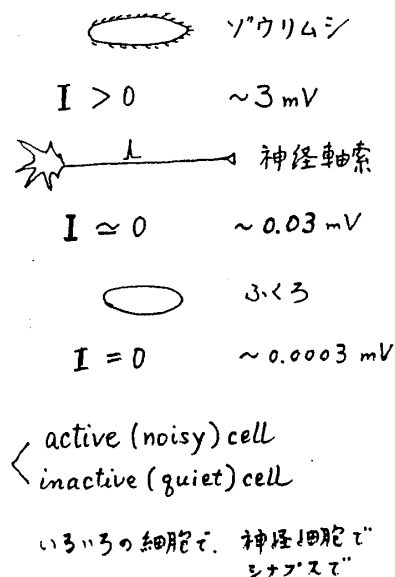 ゾウリムシ
I > 0 ~3mV
神経軸索
I ≃ 0 ~0.03 mV
ふくろ
I = 0 ~0.0003 mV
active (noisy) cell
inactive (quiet) cell
いろいろの細胞で. 神経細胞で
シナプスで